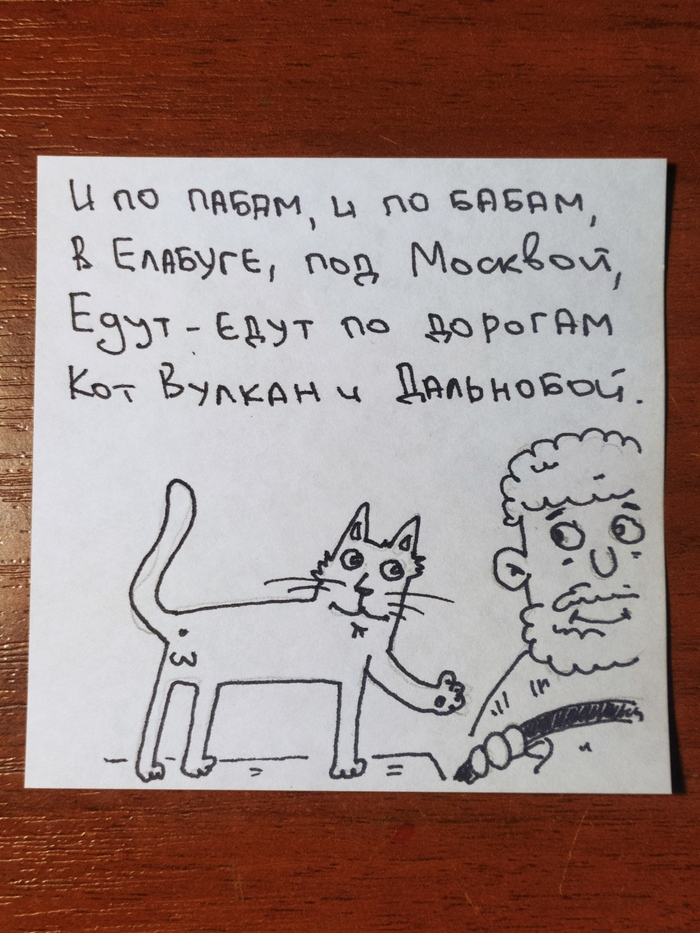 И по пабам, и по бабам,
В Елабуге, под Москвой,
Едут-едут по дорогам
Кот Вулкан и Дальнобой.